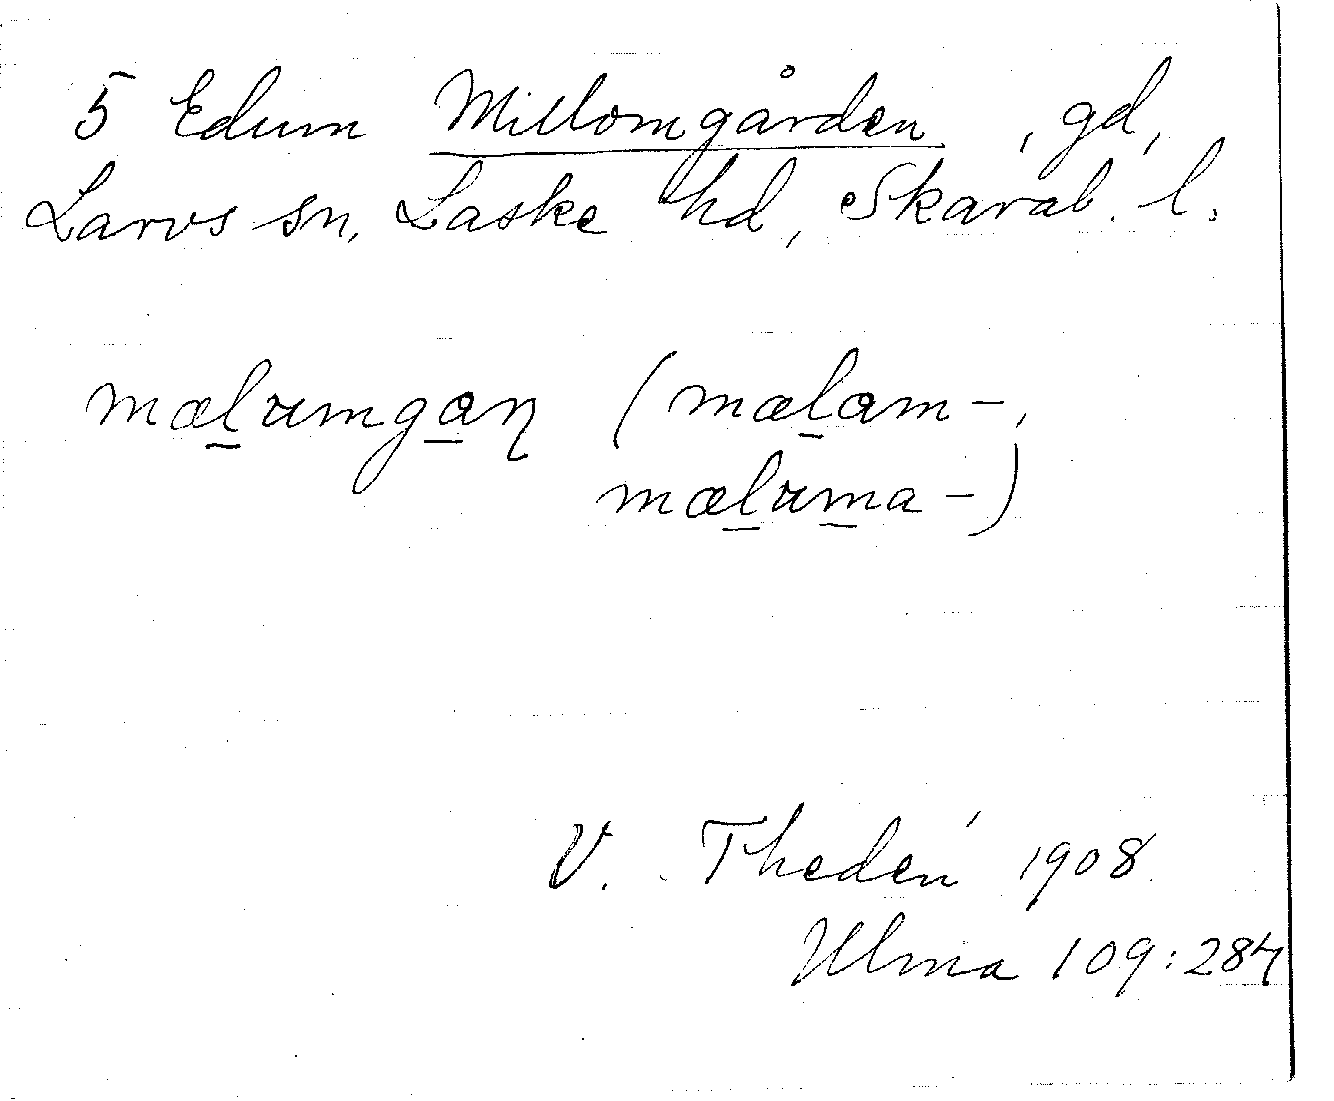 5 Edum Millomgården, gd,
Larvs sn, Laske hd, Skarab. l.
mæl̲ɤmga̲ɳ (mæl̲am-,
mæl̲ɤm̲a-)
V. Thedén 1908
Ulma 109:284